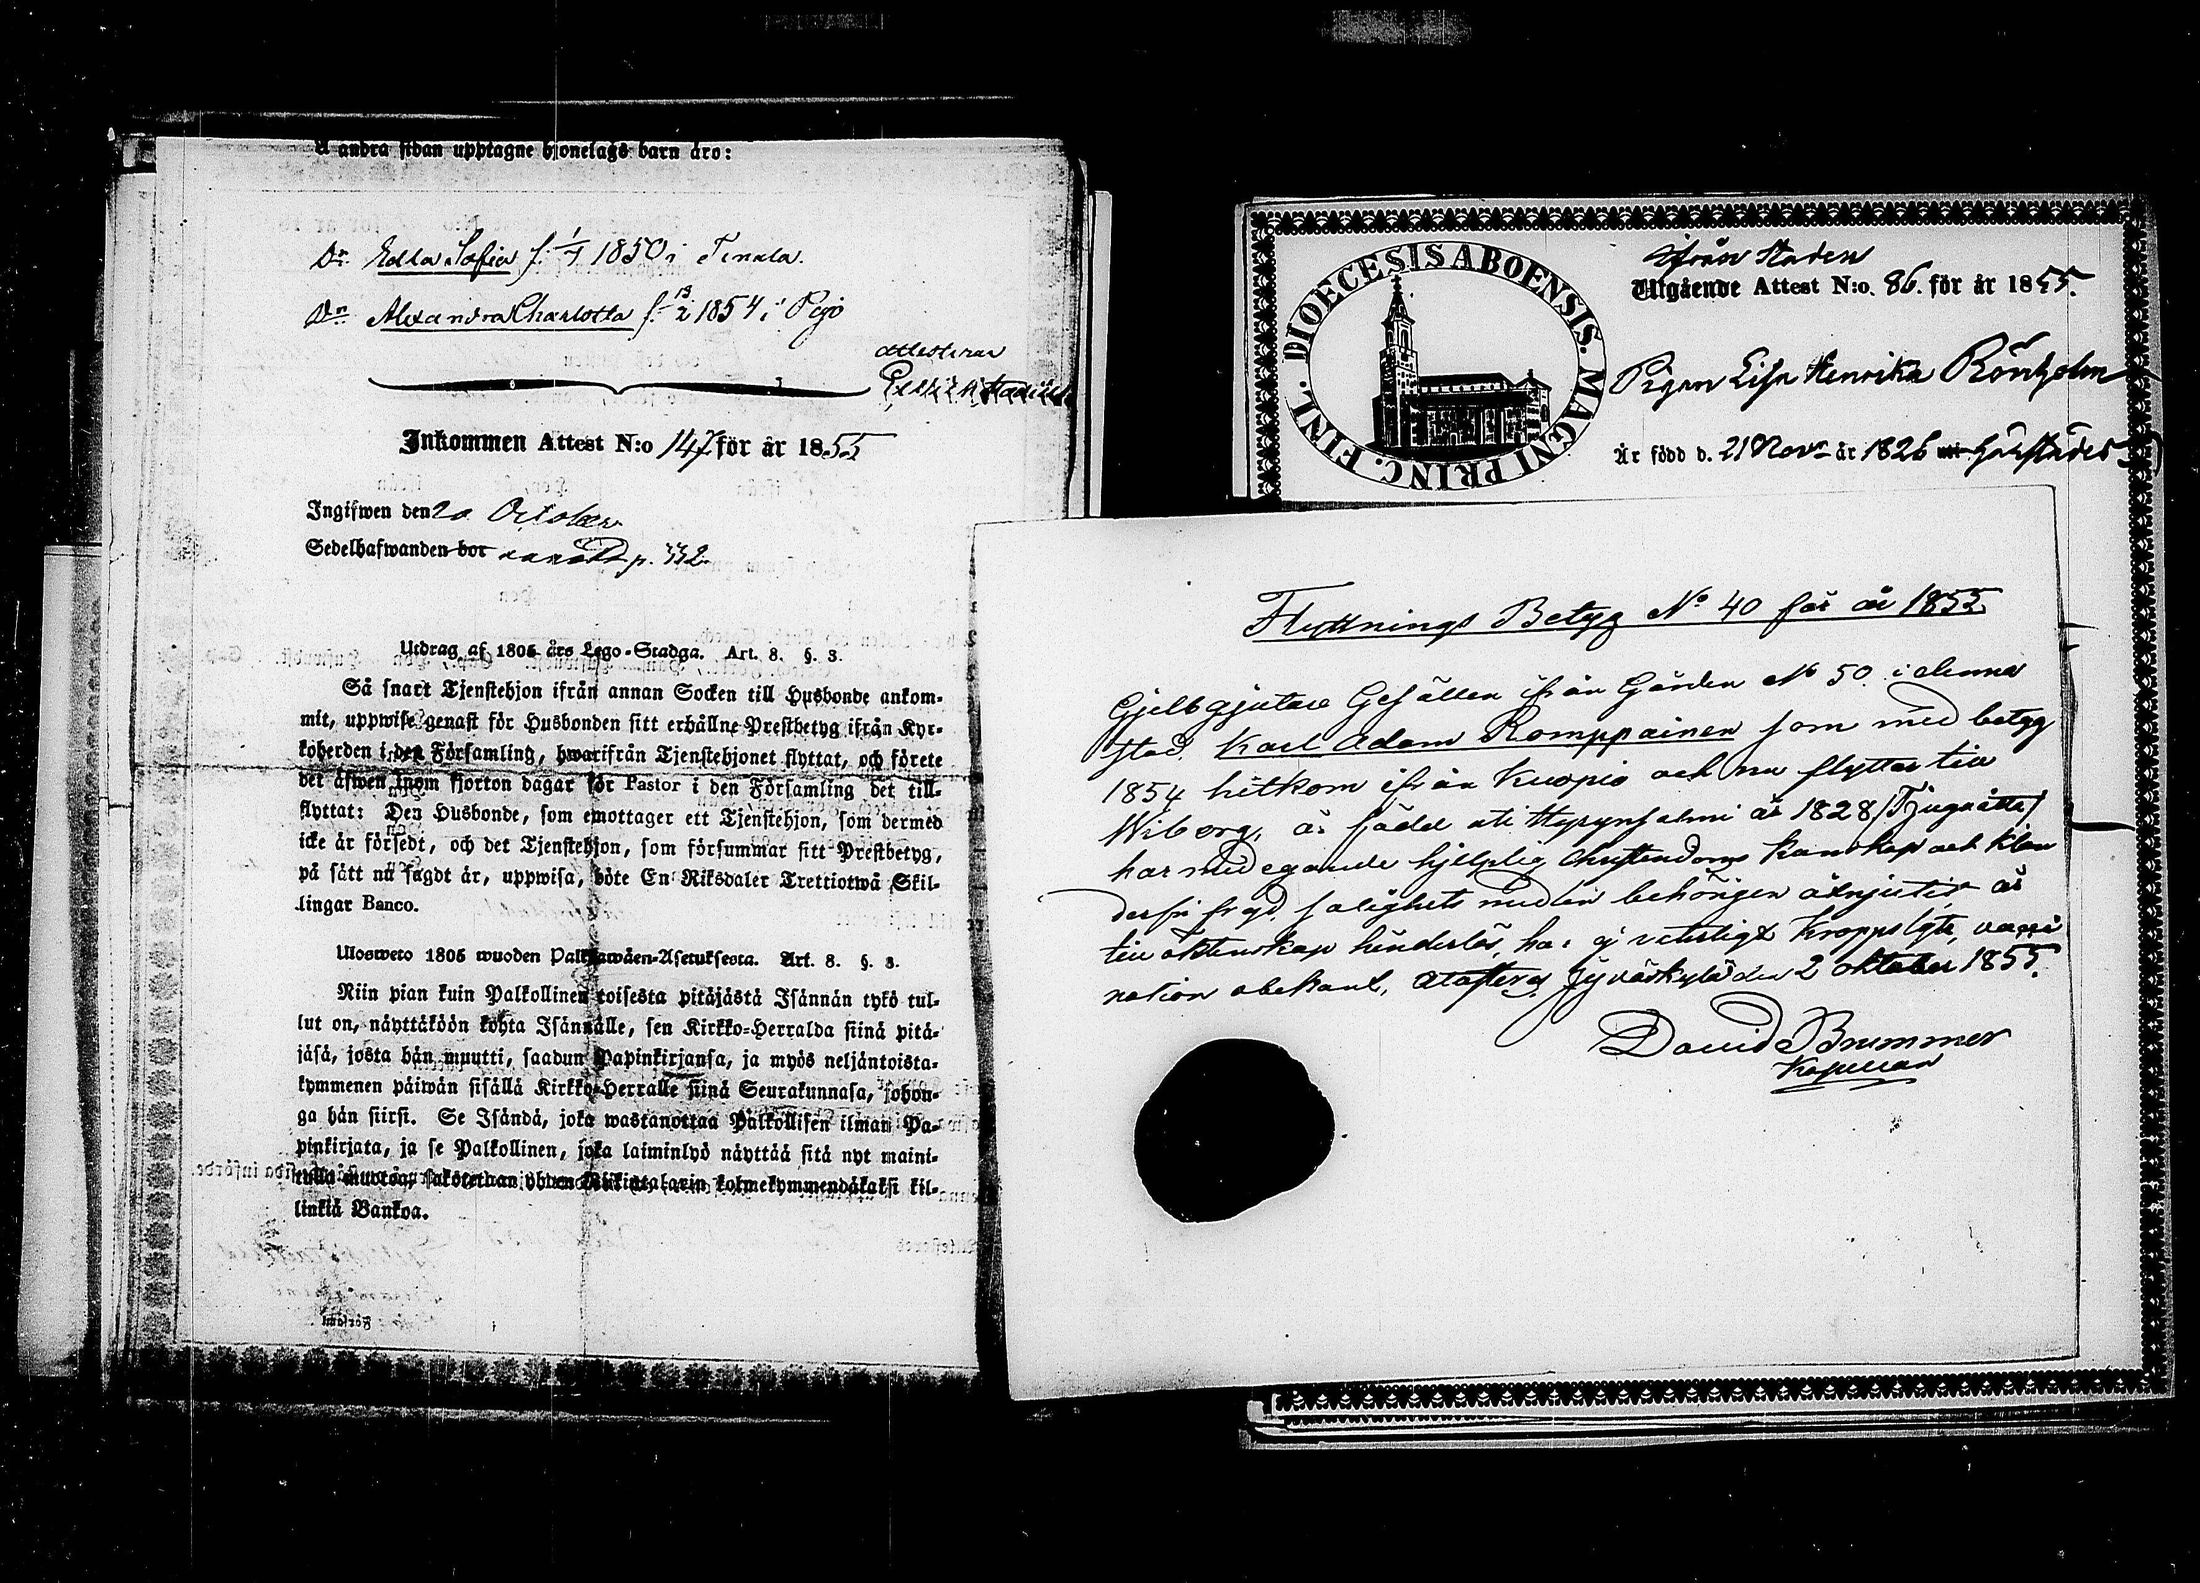 å andra sidan upptagne bjonelags barn äro:
Dr. Edla Sofia f. 1/7 1850 i Tenala.
Dr. Alexandra Charlotta f. 13/2 1854 i Pojo
attesterar
Inkommen Attest N:o 147 för år 1855
Ingifwen den 20 October
Sedelhafwanden bor p. 332.
Utdrag af 1805 års Lego-Stadga. Art. 8. §. 3.
Så snart Tjenstehjon ifrån annan Socken till Husbonde ankom-
mit, uppwise genast för Husbonden sitt erhållne Prestbetyg ifrån Kyr-
koherden i den Församling, hwarifrån Tjenstehjonet flyttat, och förete
det äfwen inom fjorton dagar för Pastor i den Församling det till-
flyttat: Den Husbonde, som emottager ett Tjenstehjon, som dermed
icke är försedt, och det Tjenstehjon, som försummar sitt Prestbetyg,
på sätt nu sagdt är, uppwisa, böte En Riksdaler Trettiotwå Skil-
lingar Banco.
Ulosweto 1805 wuoden Palkkawäen-Asetuksesta. Art. 8. §. 3.
Niin pian kuin Palkollinen toisesta pitäjästä Isännän tykö tul-
lut on, näyttäköön kohta Isännälle, sen Kirkko-Herralda siinä pitä-
jäsä, josta hän muutti, saadun Papinkirjansa, ja myös neljäntoista-
kymmenen päiwän sisällä Kirkko-Herralle siinä Seurakunnasa, johon-
ga hän siirsi. Se Isändä, joka wastanottaa Palkollisen ilman Pa-
pinkirjata, ja se Palkollinen, joka laiminlyö näyttää sitä nyt maini-
tulla muoton, sakotethan yhden Riikintalarin kolmekymmendäkaksi kil-
linkiä Bankoa.
DIOECESIS ABOENSIS. MAGNI PRINC. FINL.
Ifrån Staden
Utgående Attest N:o. 86. för år 1855.
Pigan Lisa Henrika Rönholm
Är född d. 21 Novr år 1826 uti härstädes
Flyttnings Betyg No 40 för år 1855
Gjelbgjutare Gesällen ifrån Gården No 50. i denna
stad Karl Adam Romppainen som med betyg
1854 hitkom ifrån Kuopio och nu flyttar till
Wiborg, är född uti Hyrynsalmi år 1828 /Tjuguåtta/
har med egande hjelplig Christendoms kunskap och klan
derfri frejd, salighets medlen behörigen åtnjutit, är
till äktenskap hinderlös, har ej veterligt kroppslyte, vacci
nation obekant, attesterar Jyväskylä den 2 oktober 1855.
David Brummer
Kapellan